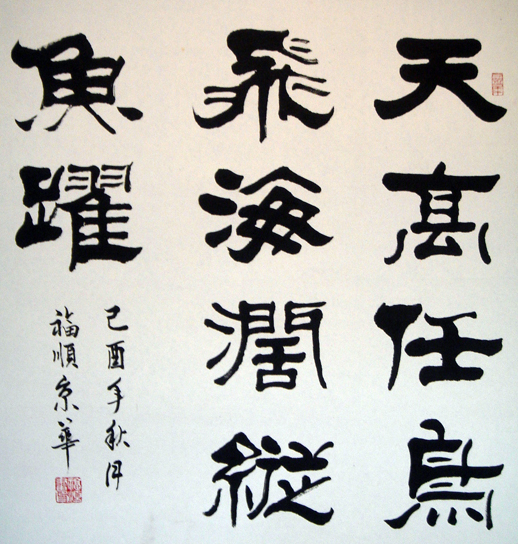 天高任鳥
飛海濶縱
魚躍
己酉年秋月
福順京華